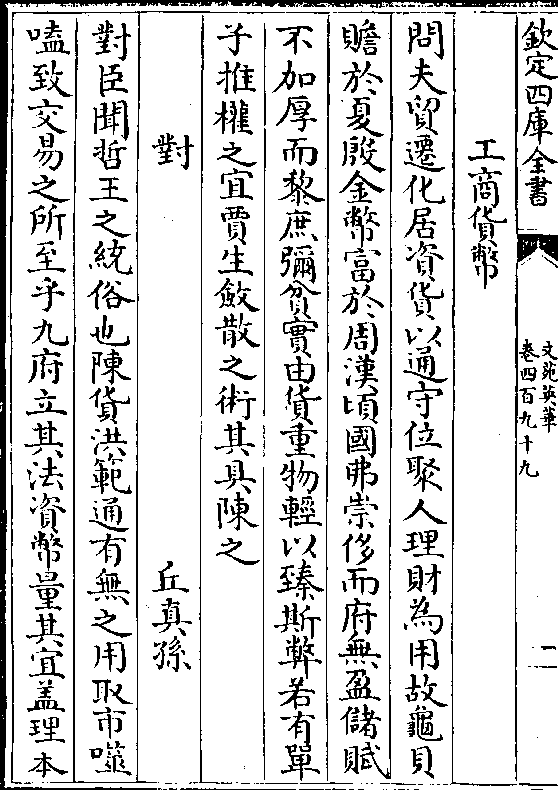 欽定四庫全書
文苑英華
卷四百九十九
二
工商貨幣
問夫貿遷化居資貨以通守位聚人理財為用故龜貝
贍於夏殷金幣富於周漢頃國弗崇侈而府無盈儲賦
不加厚而黎庶彌貧實由貨重物輕以臻斯弊若有單
子推權之宜賈生斂散之術其具陳之
對
丘真孫
對臣聞哲王之統俗也陳貨洪範通有無之用取市噬
嗑致交易之所至乎九府立其法資幣量其宜盖理本